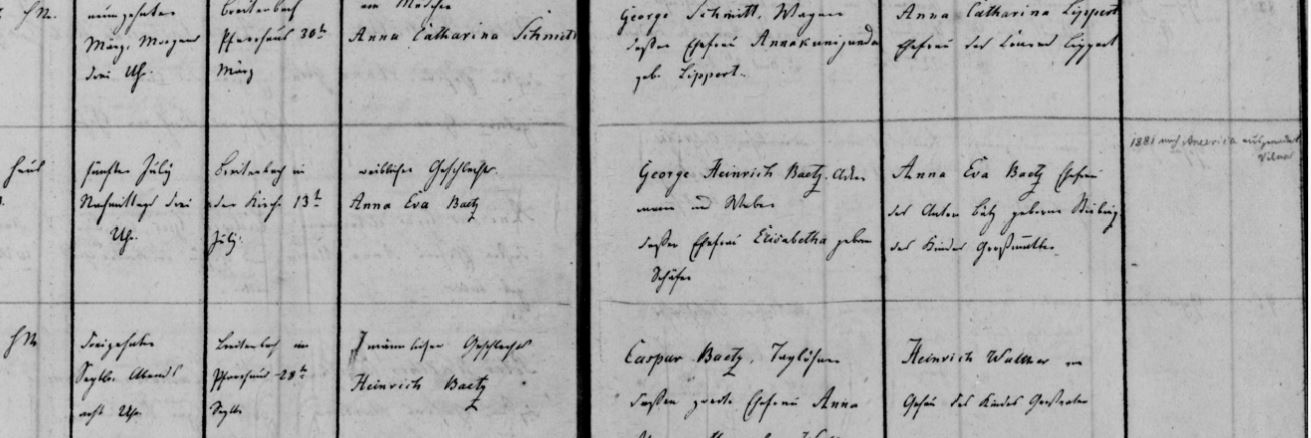 neunzehnten
März, Morgens
drei Uhr.
Breitenbach
Pfarrhaus 30t
März
ein Mädchen
Anna Catharina Schmitt
George Schmitt, Wagner
dessen Ehefrau Annakunigunda
geb. Lippert.
Anna Catharina Lippert
Ehefrau des Lippert
1881 nach America
fünften July
Nachmittags drei
Uhr.
Breitenbach in
der Kirche 13t
July.
weiblichen Geschlechts
Anna Eva Baetz
George Heinrich Baetz, Acker
mann und Weber
dessen Ehefrau Elisabetha geborne
Schäfer
Anna Eva Baetz Ehefrau
des Anton Bätz geborne
des Kindes Großmutter.
dreizehnten
Septbr. Abends
acht Uhr.
Breitenbach im
Pfarrhaus 28t
Septbr
männlichen Geschlechts
Heinrich Baetz
Caspar Baetz, Taglöhner
dessen zweite Ehefrau Anna
Heinrich
des Kindes